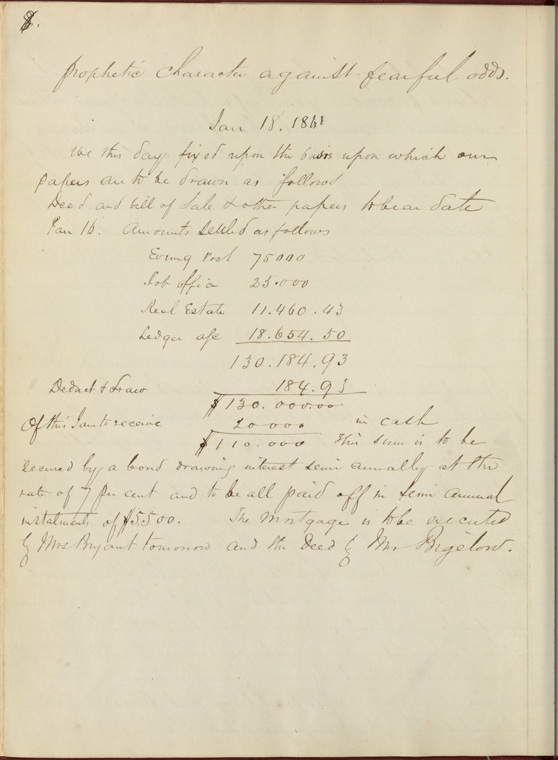 8.
prophetic character against fearful odds.
Jan 18. 1861
We this day fixed upon the basis upon which our
papers are to be drawn as follows
Deed and bill of sale & other papers to bear date
Jan 16. Amounts settled as follows
Eveng Post 75000
Job office 25.000
Real Estate 11.460.43
Ledger a/c 18.654.50
130.184.93
Deduct & draw 184.93
$130.000.00
Of this I am to receive 20000 in cash
$110.000 This sum is to be
secured by a bond drawing interest semi annually at the
rate of 7 per cent and to be all paid off in semi annual
instalments of $5.500. The mortgage is to be executed
by Mrs Bryant tomorrow and the Deed by Mrs Bigelow.